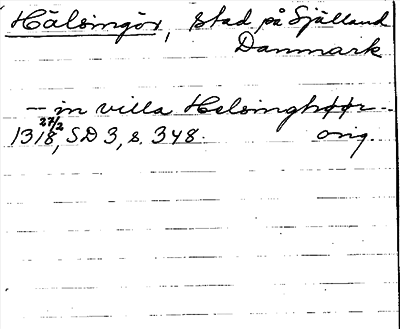 Hälsingör, stad på Själland
Danmark
- in villa Helsinghøør -
1318 27/2, SD 3, s. 348. orig.